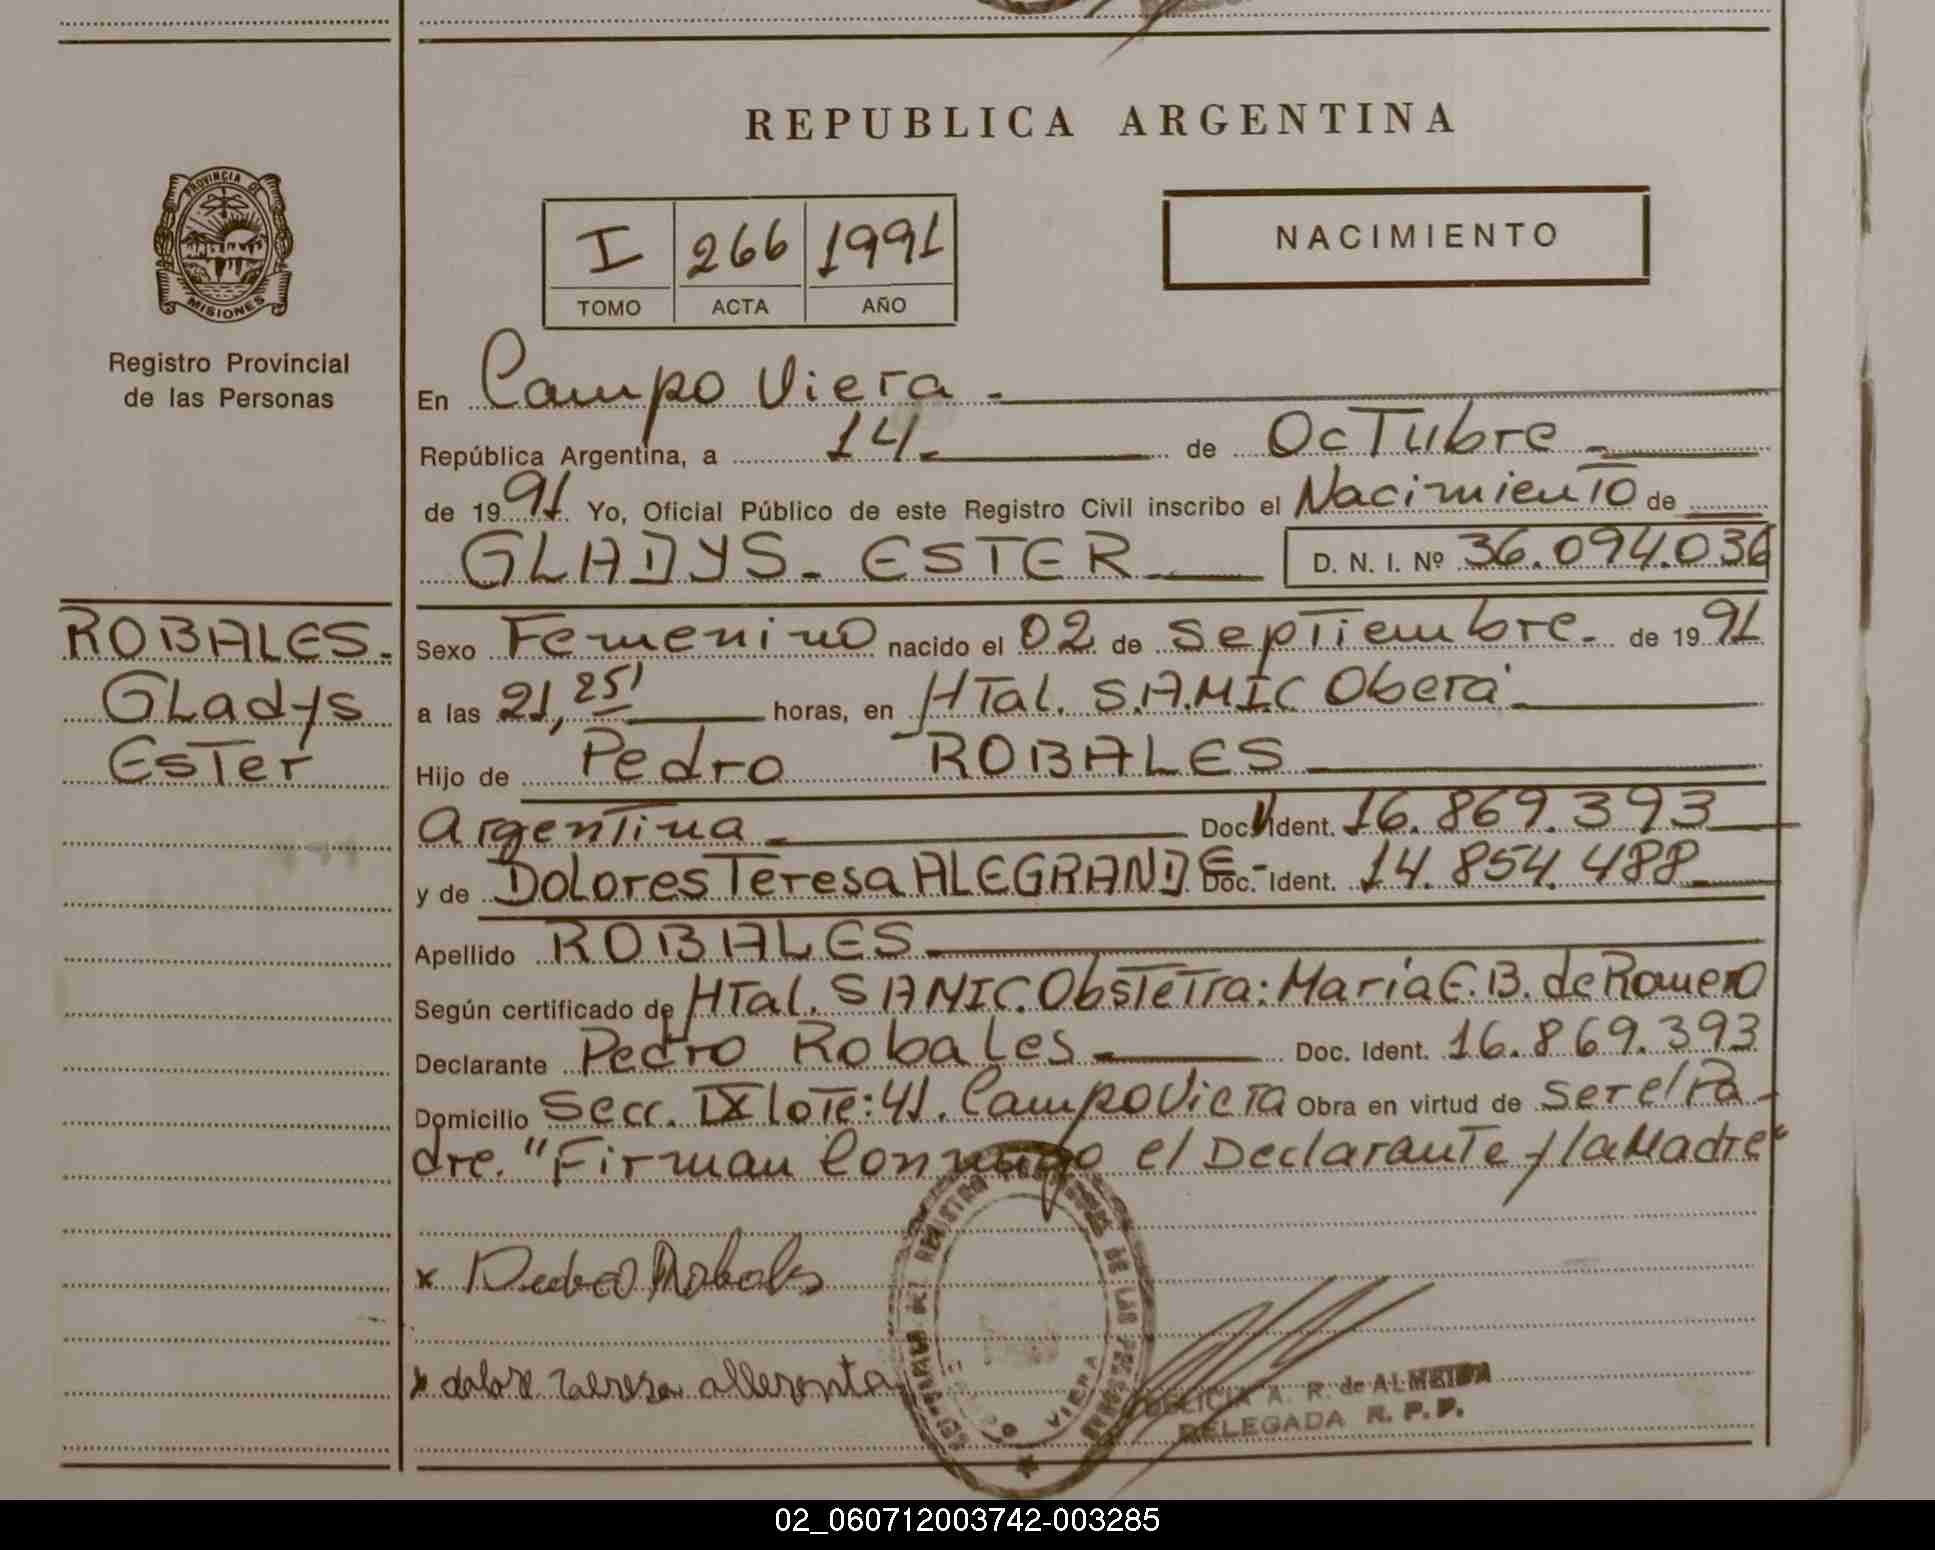 REPUBLICA ARGENTINA
PROVINCIA DE
MISIONES
Registro Provincial
de las Personas
I 266 1991
TOMO ACTA AÑO
NACIMIENTO
En Campo Viera.
República Argentina, a 14 de Octubre
de 1991 Yo, Oficial Público de este Registro Civil inscribo el Nacimiento de
GLADYS - ESTER D. N. I. Nº 36.094.036
ROBALES.
Gladys
Ester
Sexo Femenino nacido el 02 de Septiembre. de 1991
a las 21,25' horas, en HTal. S.A.MIC Oberá
Hijo de Pedro ROBALES
Argentina Doc. Ident. 16.869.393
y de Dolores Teresa ALEGRANDE.- Doc. Ident. 14.854.488
Apellido ROBALES
Según certificado de HTal. SAMIC. Obstetra: María E. B. de Romero
Declarante Pedro Robales Doc. Ident. 16.869.393
Domicilio Secc. IX lote: 41. Campo Viera Obra en virtud de ser el Pa-
dre. "Firman Conmigo el Declarante y la Madre"
x Pedro Robales
x dolore teresa
REGISTRO DE LAS PERSONAS
VIERA
A. R. de ALMEIDA
DELEGADA R. P. P.
02_060712003742-003285